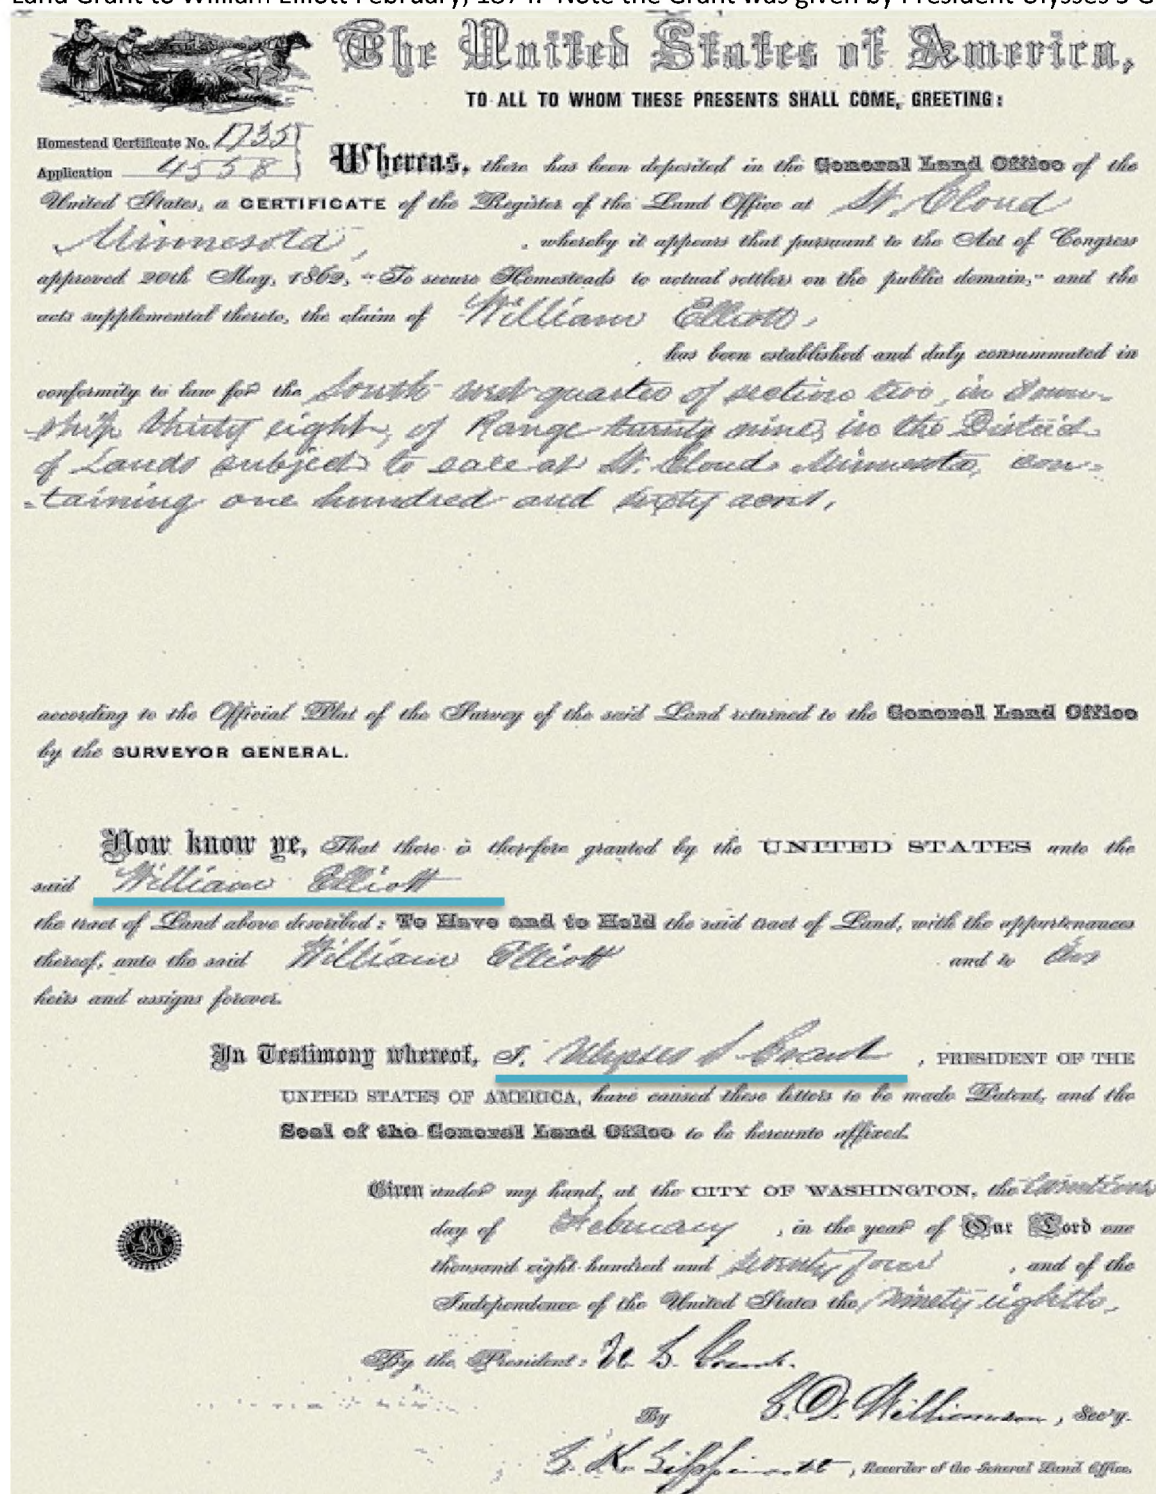 Land Grant to William Elliott February, 1874. Note the Grant was given by President Ulysses S G
The United States of America,
TO ALL TO WHOM THESE PRESENTS SHALL COME, GREETING:
Homestead Certificate No. 1735
Application 4558
Whereas, there has been deposited in the General Land Office of the
United States, a CERTIFICATE of the Register of the Land Office at St. Cloud
Minnesota, whereby it appears that pursuant to the Act of Congress
approved 20th May, 1862, "To secure Homesteads to actual settlers on the public domain," and the
acts supplemental thereto, the claim of William Elliott,
has been established and duly consummated in
conformity to law for the South west quarter of section two, in Town-
ship thirty eight, of Range twenty nine, in the District
of Lands subject to sale at St. Cloud Minnesota, con-
-taining one hundred and sixty acres,
according to the Official Plat of the Survey of the said Land returned to the General Land Office
by the SURVEYOR GENERAL.
Now know ye, That there is therefore granted by the UNITED STATES unto the
said William Elliott
the tract of Land above described: To Have and to Hold the said tract of Land, with the appurtenances
thereof, unto the said William Elliott and to his
heirs and assigns forever.
In Testimony whereof, I, Ulysses S Grant, PRESIDENT OF THE
UNITED STATES OF AMERICA, have caused these letters to be made Patent, and the
Seal of the General Land Office to be hereunto affixed.
Given under my hand, at the CITY OF WASHINGTON, the
day of February, in the year of Our Lord one
thousand eight hundred and seventy four, and of the
Independence of the United States the ninety eighth,
By the President: U. S. Grant.
By S. D. Williamson, Sec'y.
Recorder of the General Land Office.